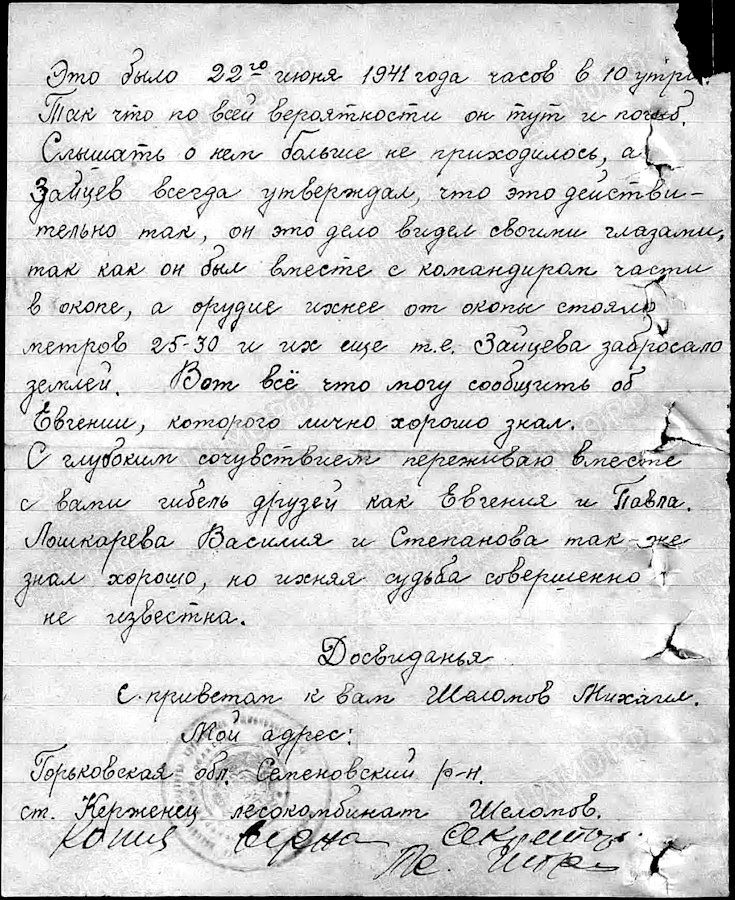 Это было 22го июня 1941 года часов в 10 утра.
Так что по всей вероятности он тут и погиб.
Слышать о нем больше не приходилось, а
Зайцев всегда утверждал, что это действи-
тельно так, он это дело видел своими глазами,
так как он был вместе с командиром части
в окопе, а орудие ихнее от окопы стояло
метров 25-30 и их еще т.е. Зайцева забросало
землей. Вот всё что могу сообщить об
Евгении, которого лично хорошо знал.
С глубоким сочувствием переживаю вместе
с вами гибель друзей как Евгения и Павла.
Лошкарева Василия и Степанова так-же
знал хорошо, но ихняя судьба совершенно
не известна.
Досвиданья
С приветом к вам Шеломов Михаил.
Мой адрес:
Горьковская обл. Семеновский р-н.
ст. Керженец лесокомбинат Шеломов.
Копия верна